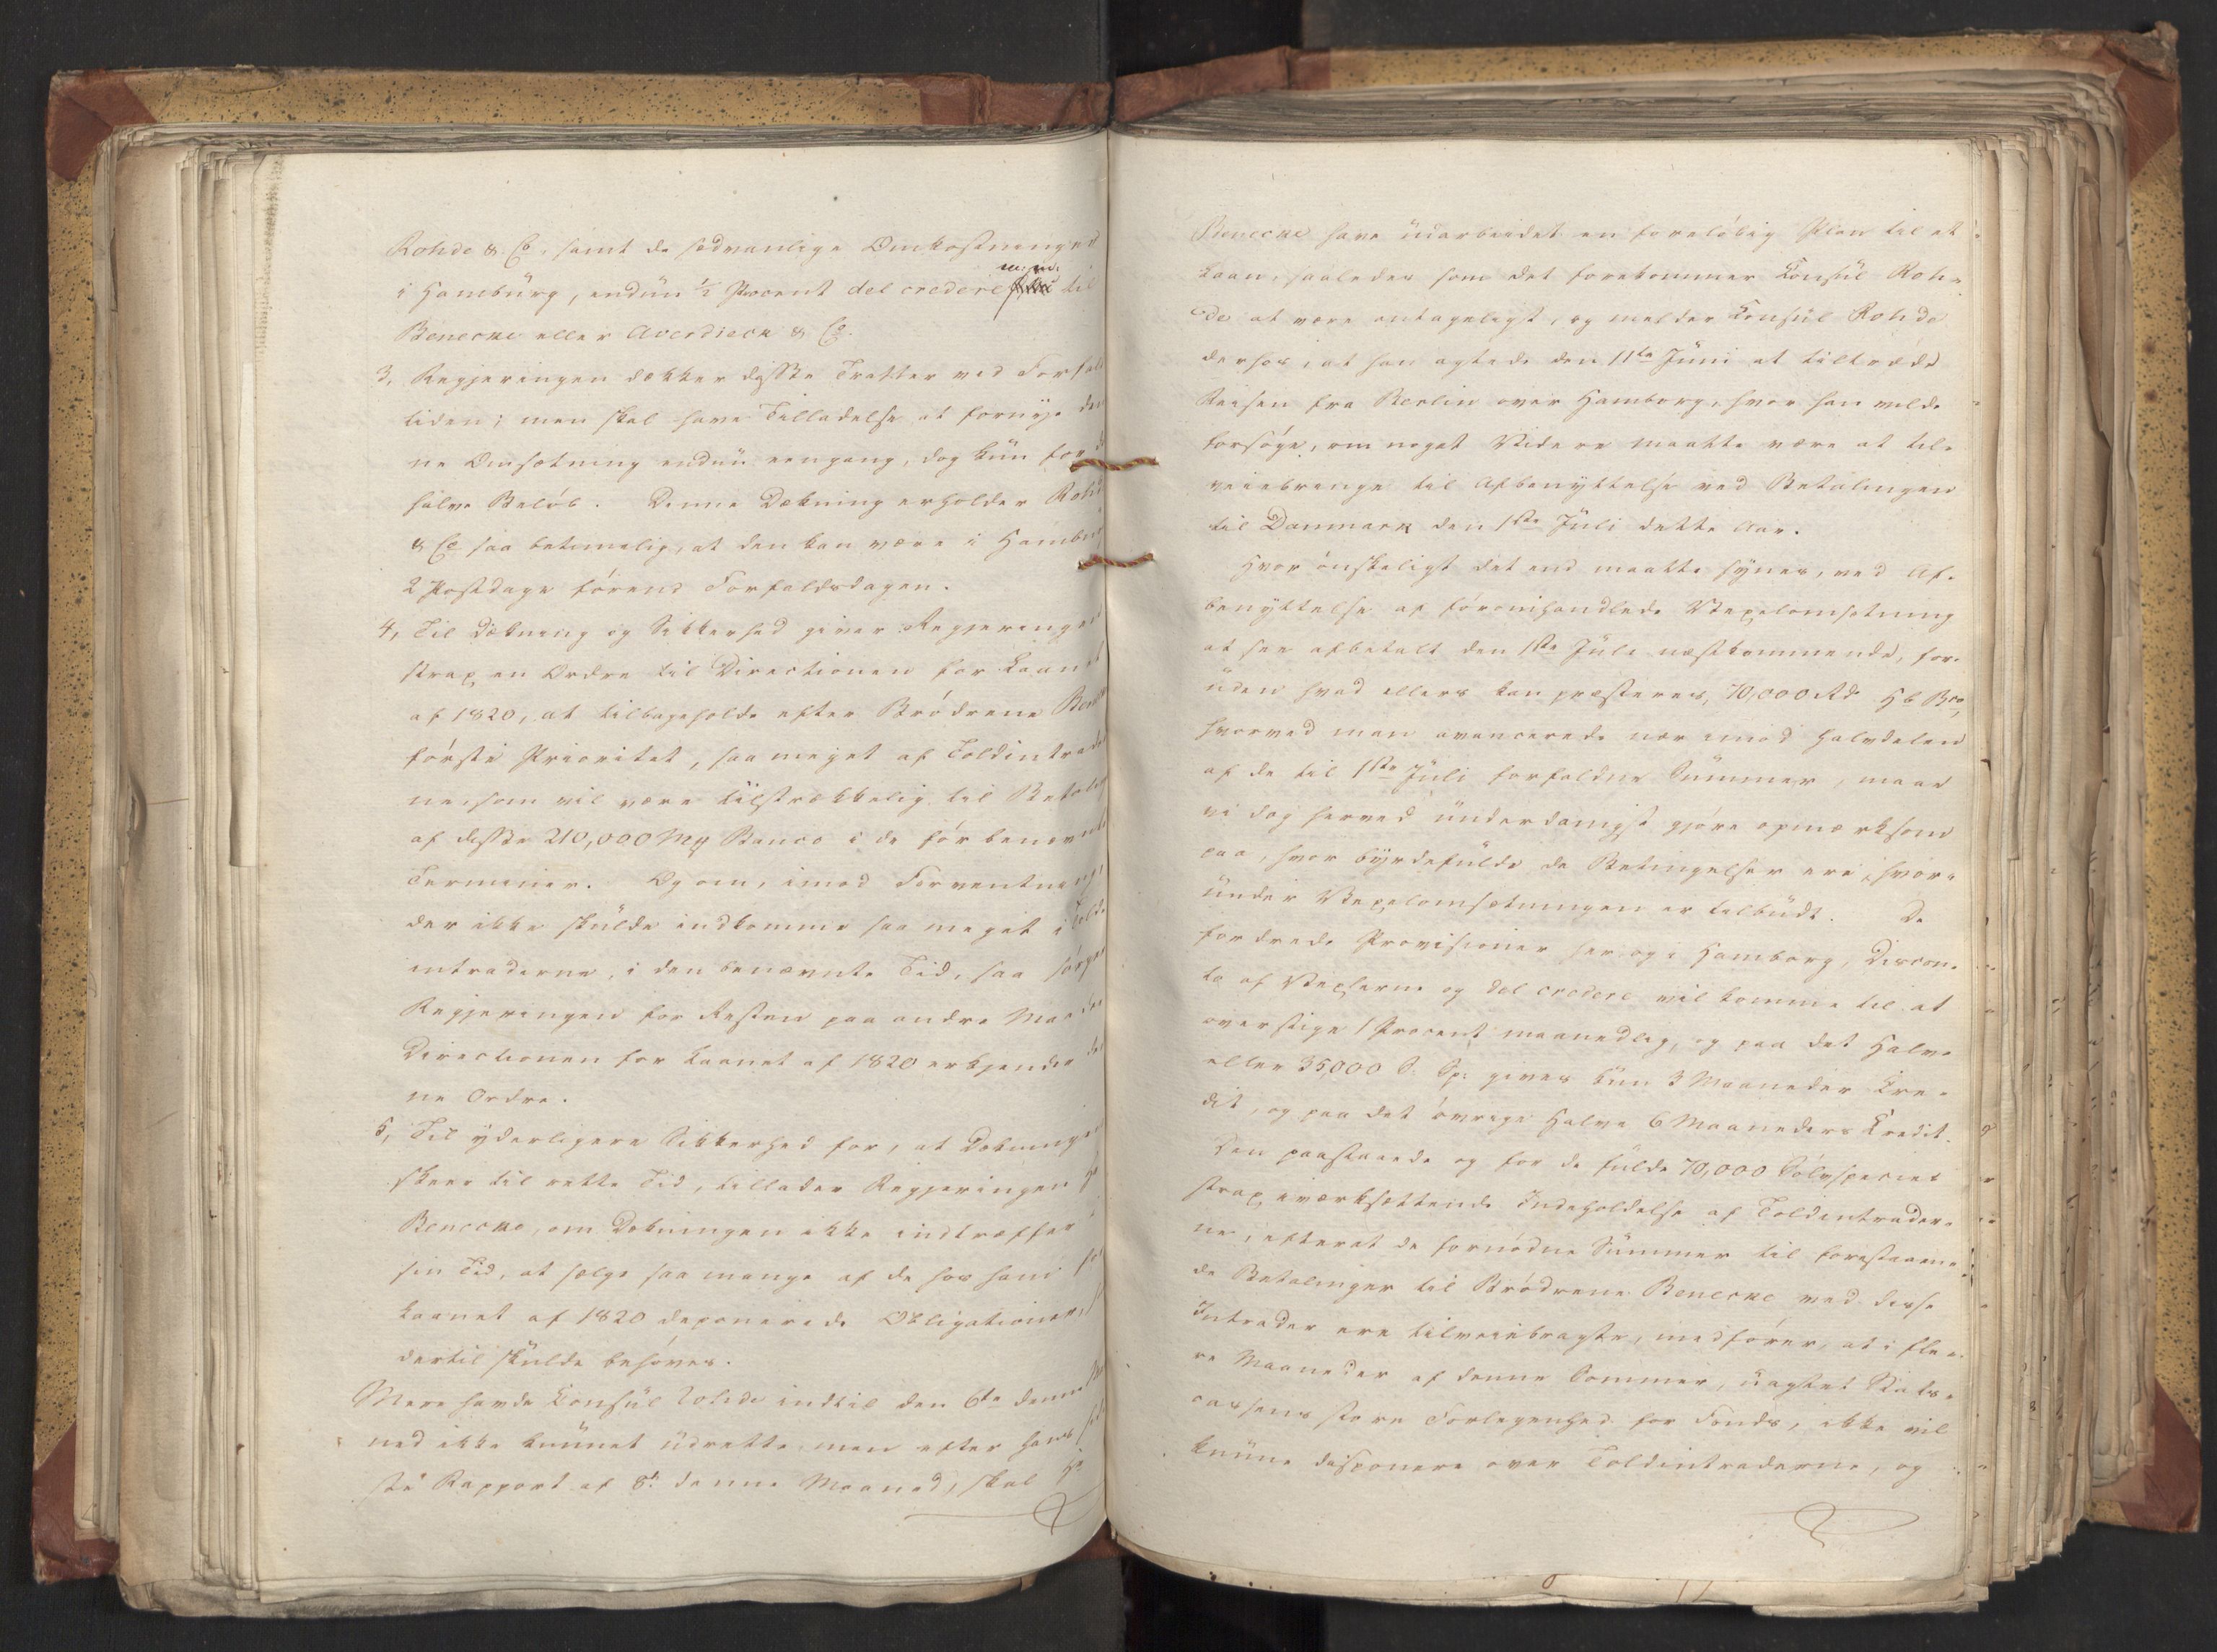 Rohde & Co, samt de sædvanlige Omkostninger
i Hambürg, endnu ½ Procent del credere til
Benecke eller Averdieck & Co.
3, Regjeringen dækker disse Tratter ved Forfald
tiden; men skal have Tilladelse at fornye den
ne Omsætning endnu eengang, dog kün for
halve Beløb. Denne Dækning erholder Rohde
& Co saa betimelig, at den kan være i Hambu
2 Postdage førend Forfaldsdagen.
4, Til Dækning og Sikkerhed giver Regjeringen
strax en Ordre til Directionen for Laanet
af 1820, at tilbageholde efter Brødrene Ben
første Prioritet, saa meget af Toldintrader
ne, som vil være tilstrækkelig til Betaling
af disse 210,000 Mk Banco i de før benævnte
Terminer. Og om, imod Forventning
der ikke skülde indkomme saa meget i Told
intraderne, i den benævnte Tid, saa sørger
Regjeringen for Resten paa andre Maader
Directionen for Laanet af 1820 erkjender den
ne Ordre.
5, Til yderligere Sikkerhed for, at Dækningen
skeer til rette Tid, tillader Regjeringen
Benecke, om Dækningen ikke indtræffer i
sin Tid, at sælge saa mange af de hos ham
Laanet af 1820 deponerede Obligationer,
dertil skulde behøves.
Mere havde Consül Rohde indtil den 6te denne
ned ikke kunnet üdrette, men efter hans sid
ste Rapport af 8de denne Maaned, skal Hr
Benecke have üdarbeidet en foreløbig Plan til et
Laan, saaledes som det forekommer Consül Roh-
de at være antageligt, og melder Consül Rohde
derhos, at han agtede den 11te Jüni at tiltræde
Reisen fra Berlin over Hamborg, hvor han vilde
forsøge, om noget Videre maatte være at til-
veiebringe til Afbenyttelse ved Betalingen
til Danmark den 1ste Jüli dette Aar.
Hvor ønskeligt det end maatte synes, ved Af-
benyttelse af føromhandlede Vexelomsætning
at see afbetalt den 1ste Jüli næstkommende, for-
üden hvad ellers kan præsteres, 70,000 Rd Hb Bco,
hvorved man avancerede nær imod Halvdelen
af de til 1ste Jüli forfaldne Sümmer, maae
vi dog herved ünderdanigst gjøre opmærksom
paa, hvor byrdefülde de Betingelser ere, hvor-
ünder Vexelomsætningen er tilbüdt. De
fordrede Provisioner her og i Hamborg, Discon-
to af Vexlerne og del credere vil komme til at
overstige 1 Procent maanedlig, og paa det Halve
eller 35,000 S. Sp: gives kün 3 Maaneder Cre-
dit, og paa det øvrige Halve 6 Maaneders Credit.
Den paastaaede og for de fulde 70,000 Sølvspecier
strax iværksættende Indeholdelse af Toldintrader-
ne, efterat de fornødne Sümmer til forestaaen-
de Betalinger til Brødrene Benecke ved disse
Intrader ere tilveiebragte, medfører, at i fle-
re Maaneder af denne Sommer, üagtet Stats-
cassens store Forlegenhed for Fonds, ikke vil
künne disponere over Toldintraderne, og